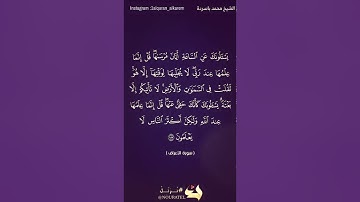 Instagram :3alquran_alkarem
الشيخ محمد باسردة
يَسْـَٔلُونَكَ عَنِ ٱلسَّاعَةِ أَيَّانَ مُرْسَىٰهَا ۖ قُلْ إِنَّمَا
عِلْمُهَا عِندَ رَبِّى ۖ لَا يُجَلِّيهَا لِوَقْتِهَآ إِلَّا هُوَ ۚ
ثَقُلَتْ فِى ٱلسَّمَٰوَٰتِ وَٱلْأَرْضِ ۚ لَا تَأْتِيكُمْ إِلَّا
بَغْتَةً ۗ يَسْـَٔلُونَكَ كَأَنَّكَ حَفِىٌّ عَنْهَا ۖ قُلْ إِنَّمَا عِلْمُهَا
عِندَ ٱللَّهِ وَلَٰكِنَّ أَكْثَرَ ٱلنَّاسِ لَا
يَعْلَمُونَ
( سورة الأعراف )
@NOURATEL